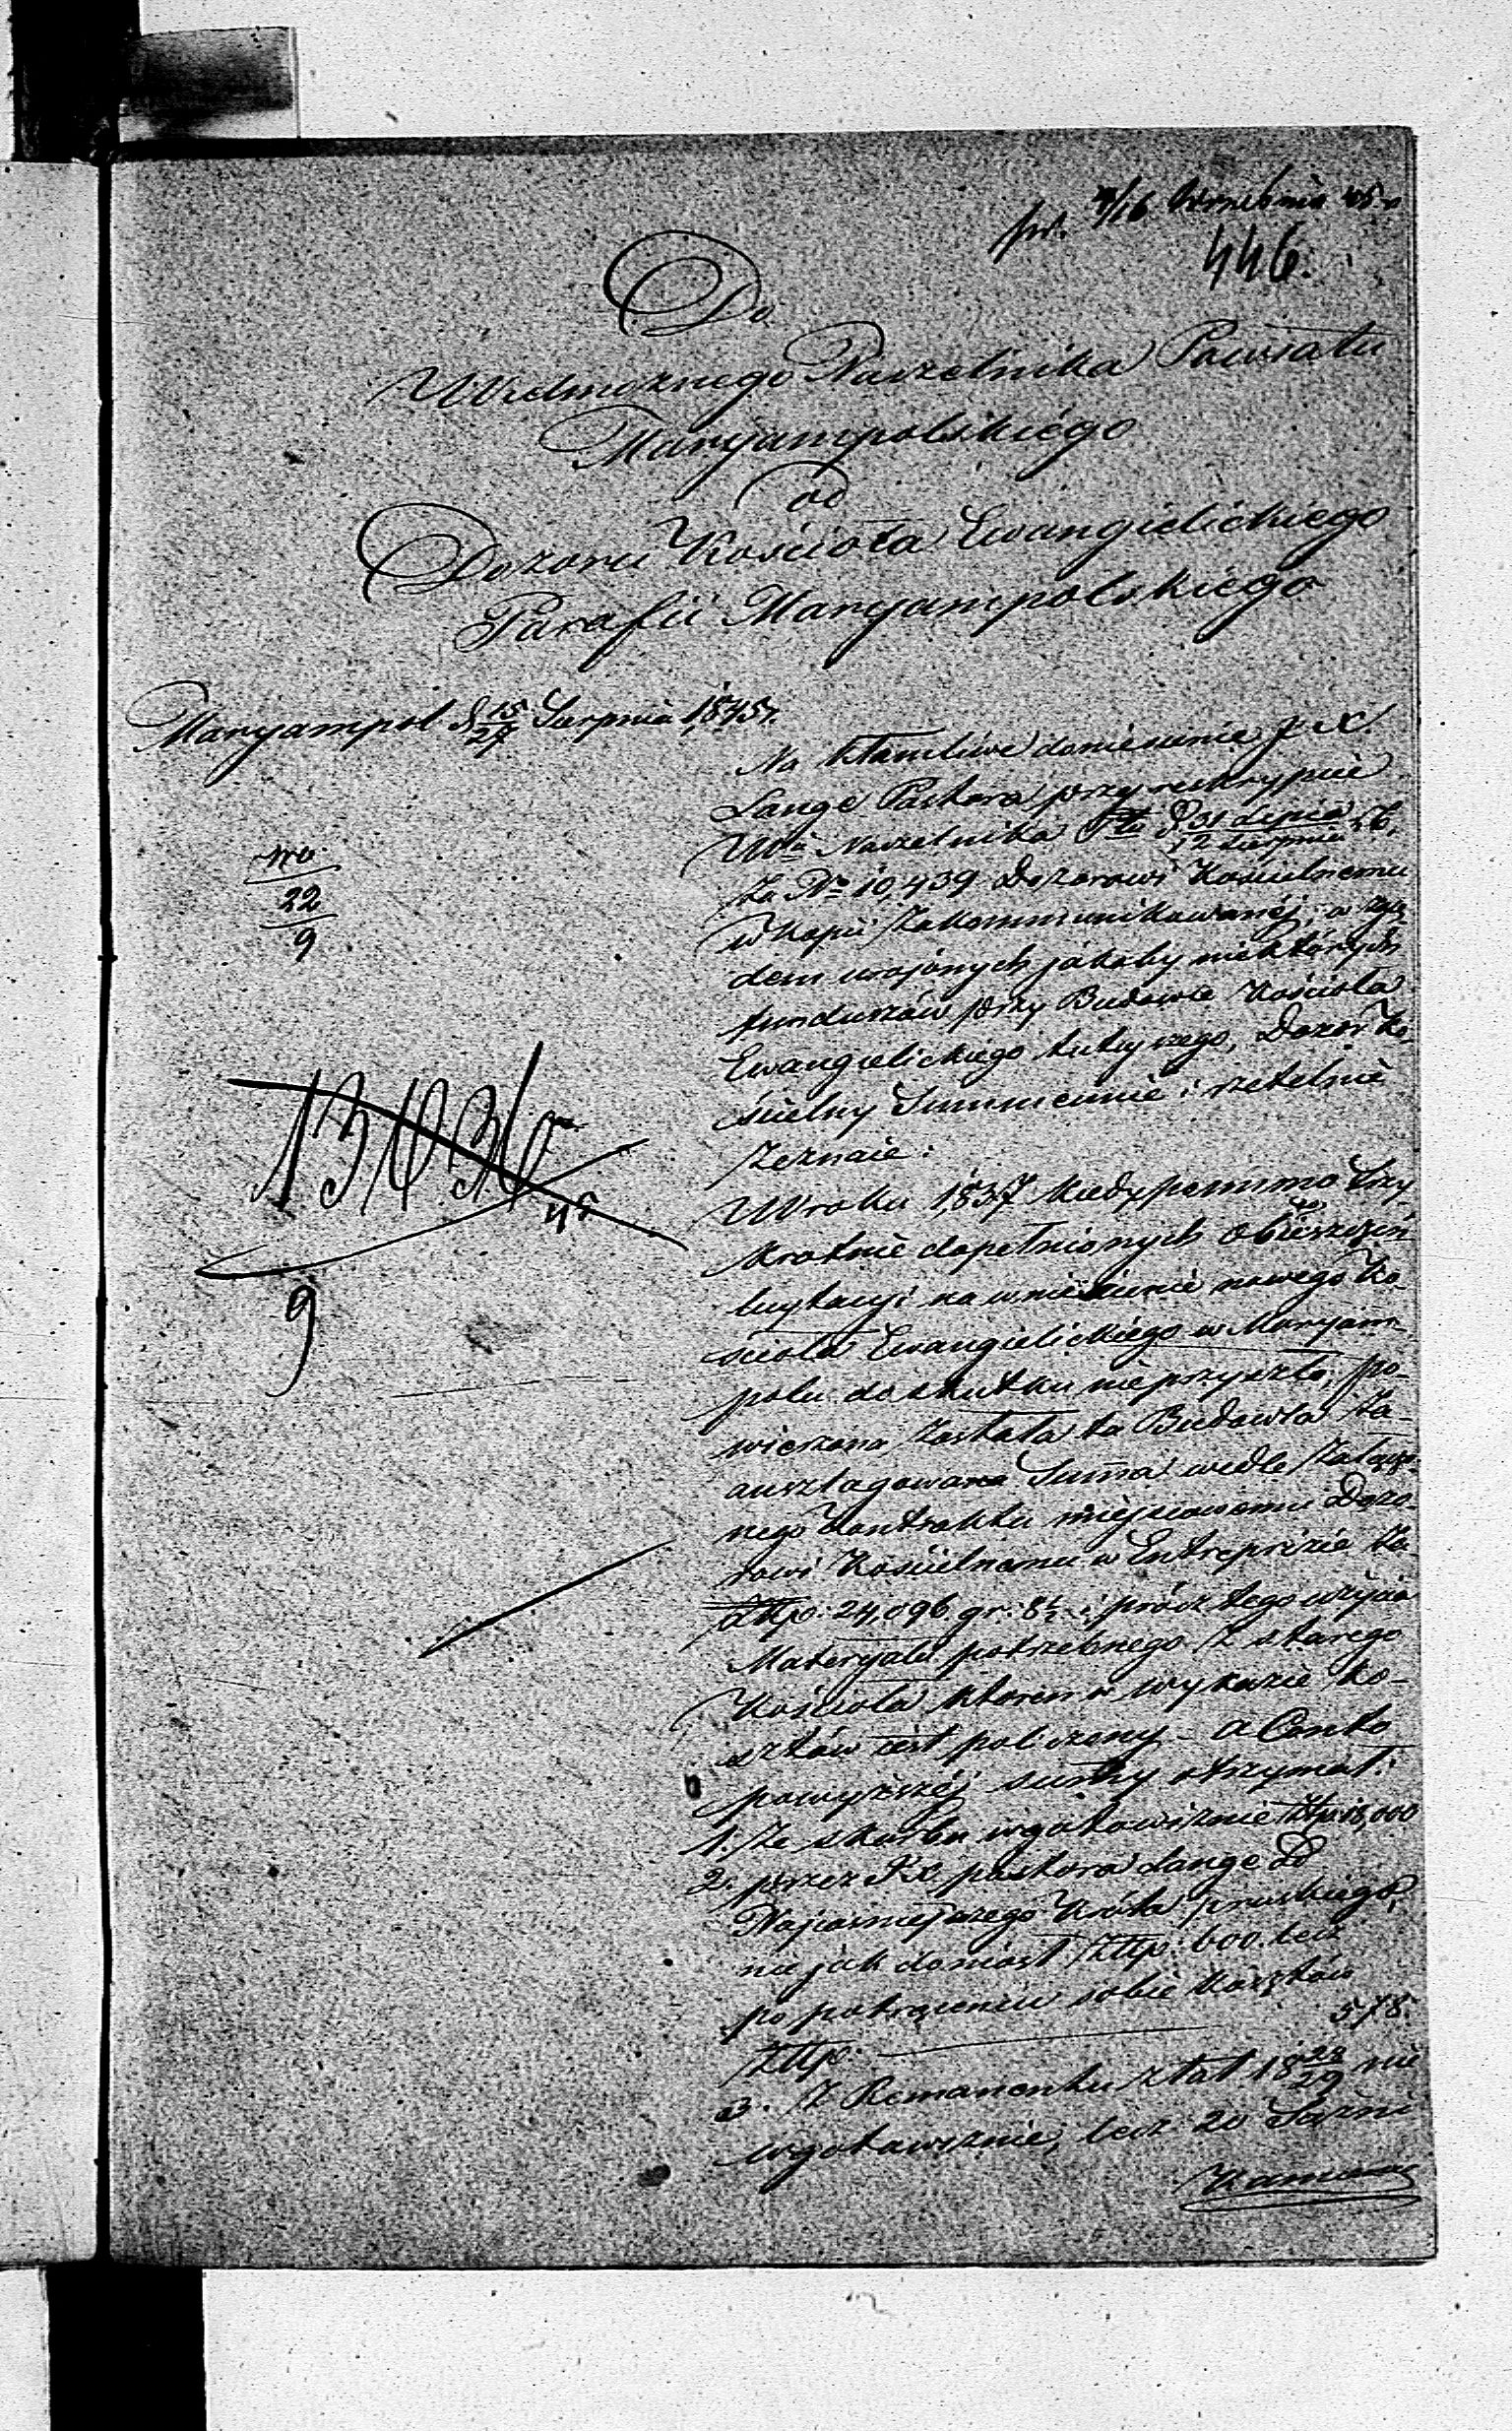 pr. 4/16 Września 45 r
446.
Do
Wielmożnego Naczelnika Powiatu
Maryampolskiégo
od
Dozoru Kościoła Ewangielickiego
Parafii Maryampolskiego
Maryampol d 15/27 Sierpnia 1845 r.
Na kłamliwe doniesienie JX.
Lange Pastora przy reskrypcie
Wgo Naczelnika Ptu d 31 Lipca/12 Sierpnia
Za No 10,439 Dozorowi Kościelnemu
w kopii zakommunikowanéj, wzglę
dem urojonych jakoby niektórych
funduszów przy Budowie Kościoła
Ewangielickiego tutejszego, Dozór Ko
ścielny Summienie i rzetelnie
zeznaie:
W roku 1837 kiedy pomimo trzy
krotnie dopełnionych Obwieszczeń
licytacyi na wniesienie nowego Ko-
ścioła Ewangielickiego w Maryam-
polu do skutku nieprzyszło, po-
wierzona została ta Budowla za
anszlagowana Summa wedle załączo
nego kontraktu miejscowemu Dozo
rowi Kościelnemu w Entrepryzie za
Złtp: 24,096 gr: 8½ i prócz tego użycia
Materyału potrzebnego z starego
Kościoła któren w wykazie ko-
sztów iest policzony - a Conto
powyższéj summy otrzymał:
1. Ze skarbu w gotowiznie Złtp 18,000
2. przez JX. pastora Lange od
Najiaśniejszego Króla pruskiego,
nie jak doniosł Złtp: 600. lecz
po potrąceniu sobie kosztów
Złtp. 578.
3. Z Remanentu z lat 1828/29 nie
w gotowiznie, lecz 20 Sążni
Kamieni
No
22/9
13636
45
9